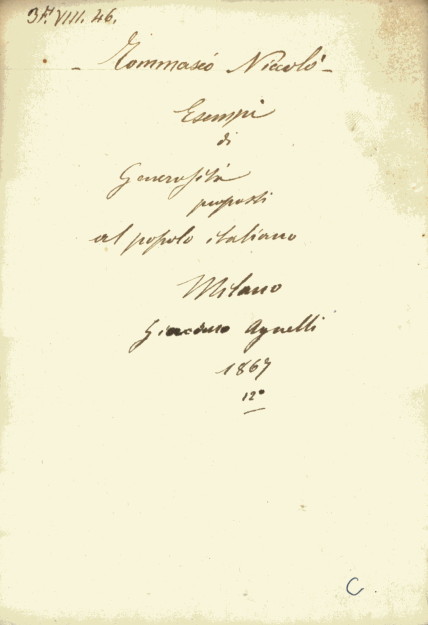 VIII. 46.
Tommaseo Niccolò
Esempi
di
Generosità
proposti
al popolo italiano
Milano
Giacomo Agnelli
1867
12°
C